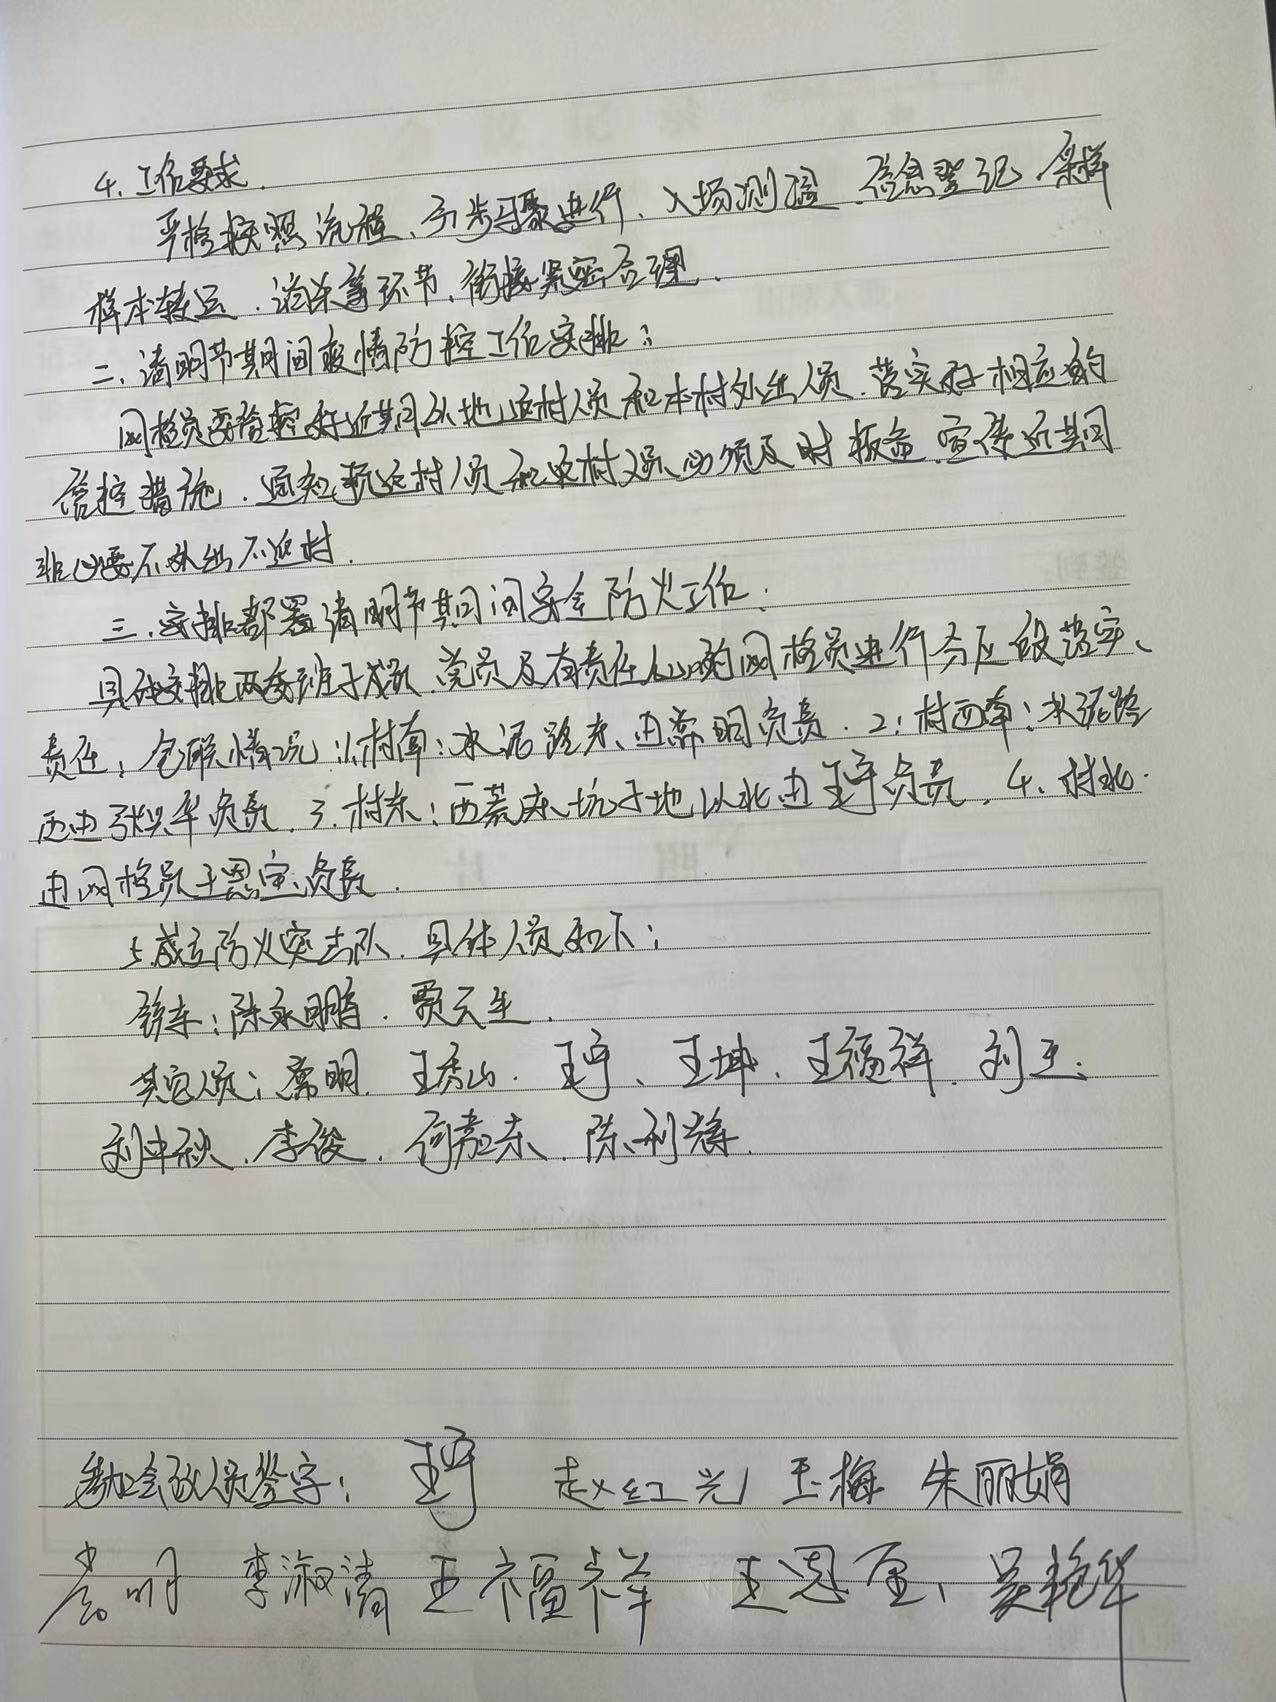 4、工作要求.
严格按照流程、分步骤进行、入场测温、信息登记、采样
样本转运、消杀等环节、衔接紧密合理.
二、清明节期间疫情防控工作安排:
网格员要管控好近期外地返村人员和本村外出人员、落实好相应的
管控措施、通知抵返村人员和返村人员必须及时报备、宣传近期
非必要不外出不返村.
三、安排部署清明节期间安全防火工作.
具体安排两委班子成员、党员及有责任心的网格员进行分片区段落实、
责任,包联情况:1、村南:水泥路东、由常明负责. 2:村西南:水泥路
西由张兴华负责. 3、村东:西 坑子地以北由王宇负责. 4、村北.
由网格员王恩宝负责.
5、成立防火突击队、具体人员如下:
铲车:陈永鹏、贾天生.
其它人员:常明、王秀山、王宇、王坤、王福祥、刘玉、
刘中秋、李俊、何嘉东、陈利辉.
参加会议人员签字: 王宇 赵红光 王梅 朱丽娟
常明 李淑清 王福祥 王恩宝、吴艳华